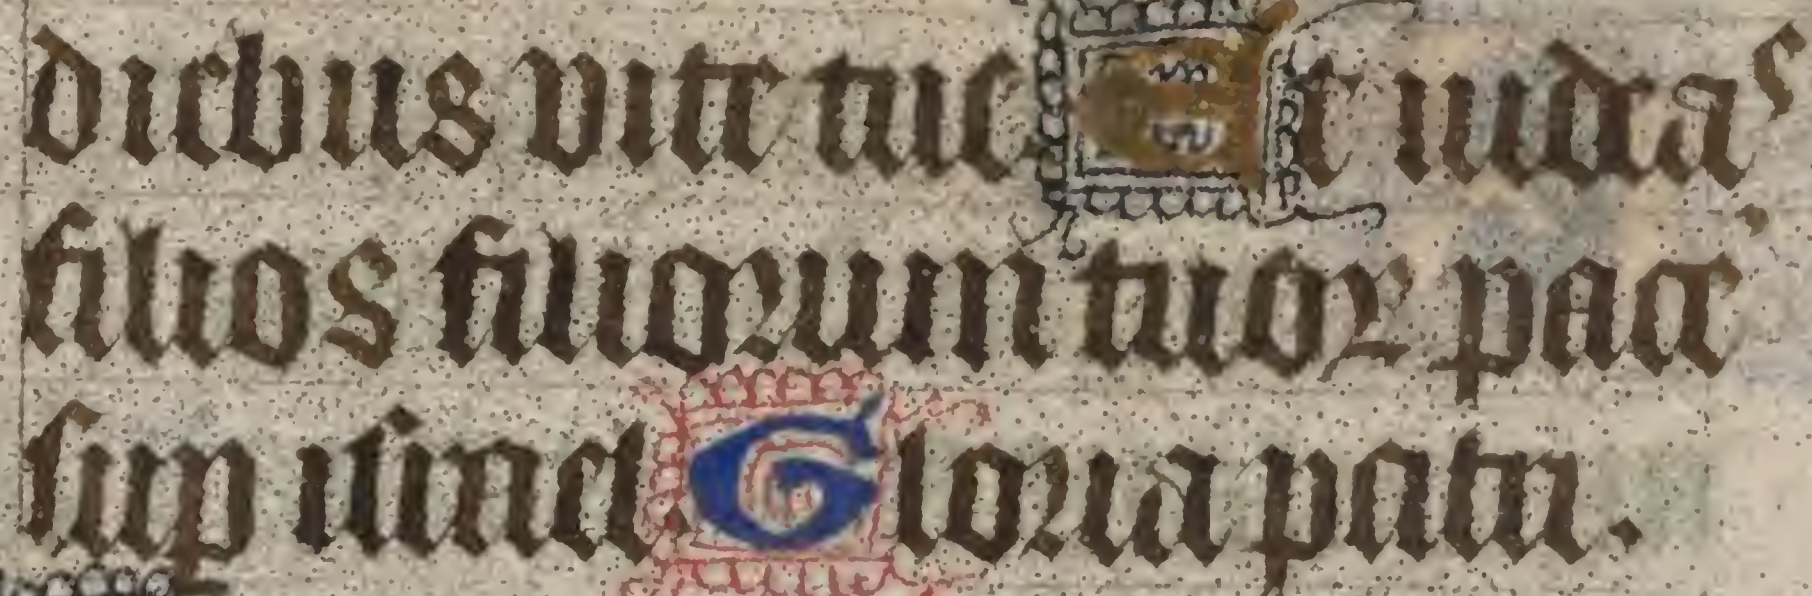 diebus vite tue Et uideas
filios filiorum tuoꝝ pacē
sup israel Gloria patri.